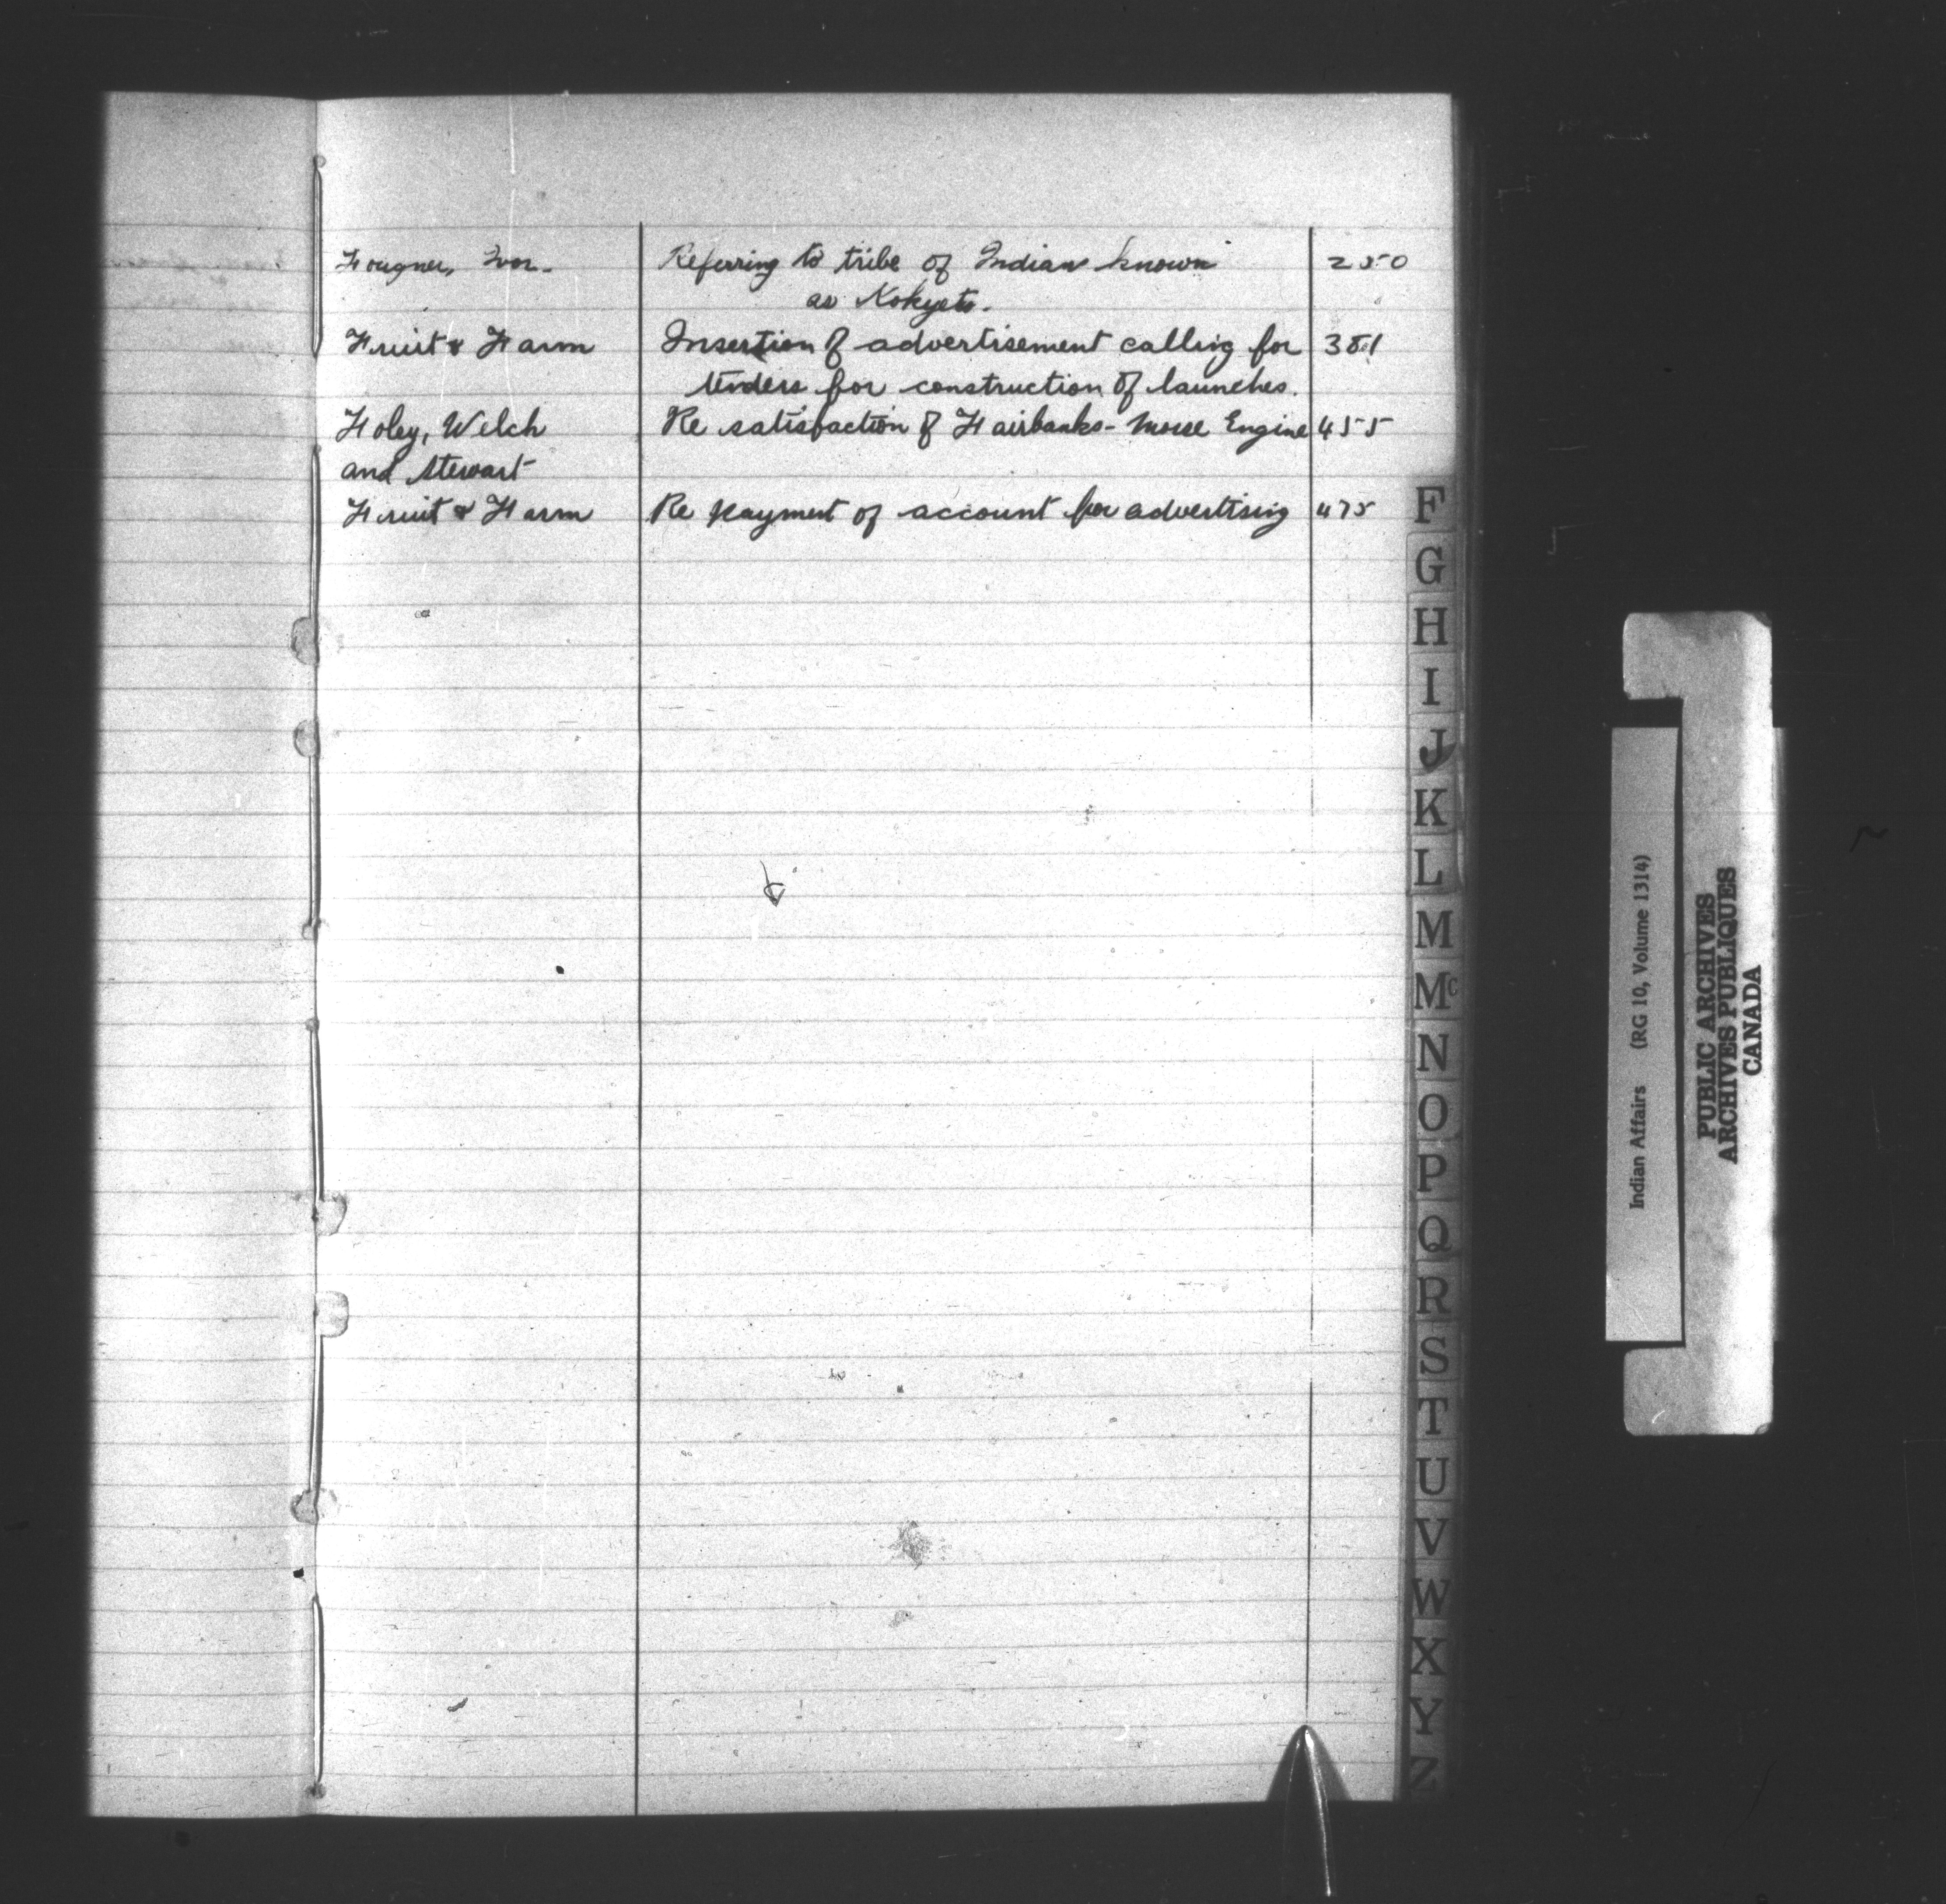 Fougner, Ivor. Referring to tribe of Indian known 250
as Kokyets.
Fruit & Farm Insertion of advertisement calling for 381
tenders for construction of launches.
Foley, Welch Re satisfaction of Fairbanks-Morse Engine 455
and Stewart
Fruit & Farm Re payment of account for advertising 475
F
G
H
I
J
K
L
M
Mc
N
O
P
Q
R
S
T
U
V
W
X
Y
Z
Indian Affairs (RG 10, Volume 1314)
PUBLIC ARCHIVES
ARCHIVES PUBLIQUES
CANADA